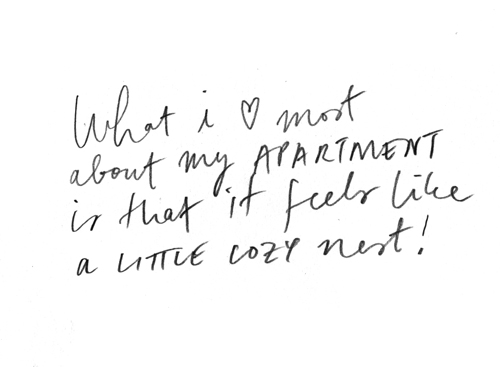 What i ♡ most
about my APARTMENT
is that it feels like
a LITTLE COZY nest!